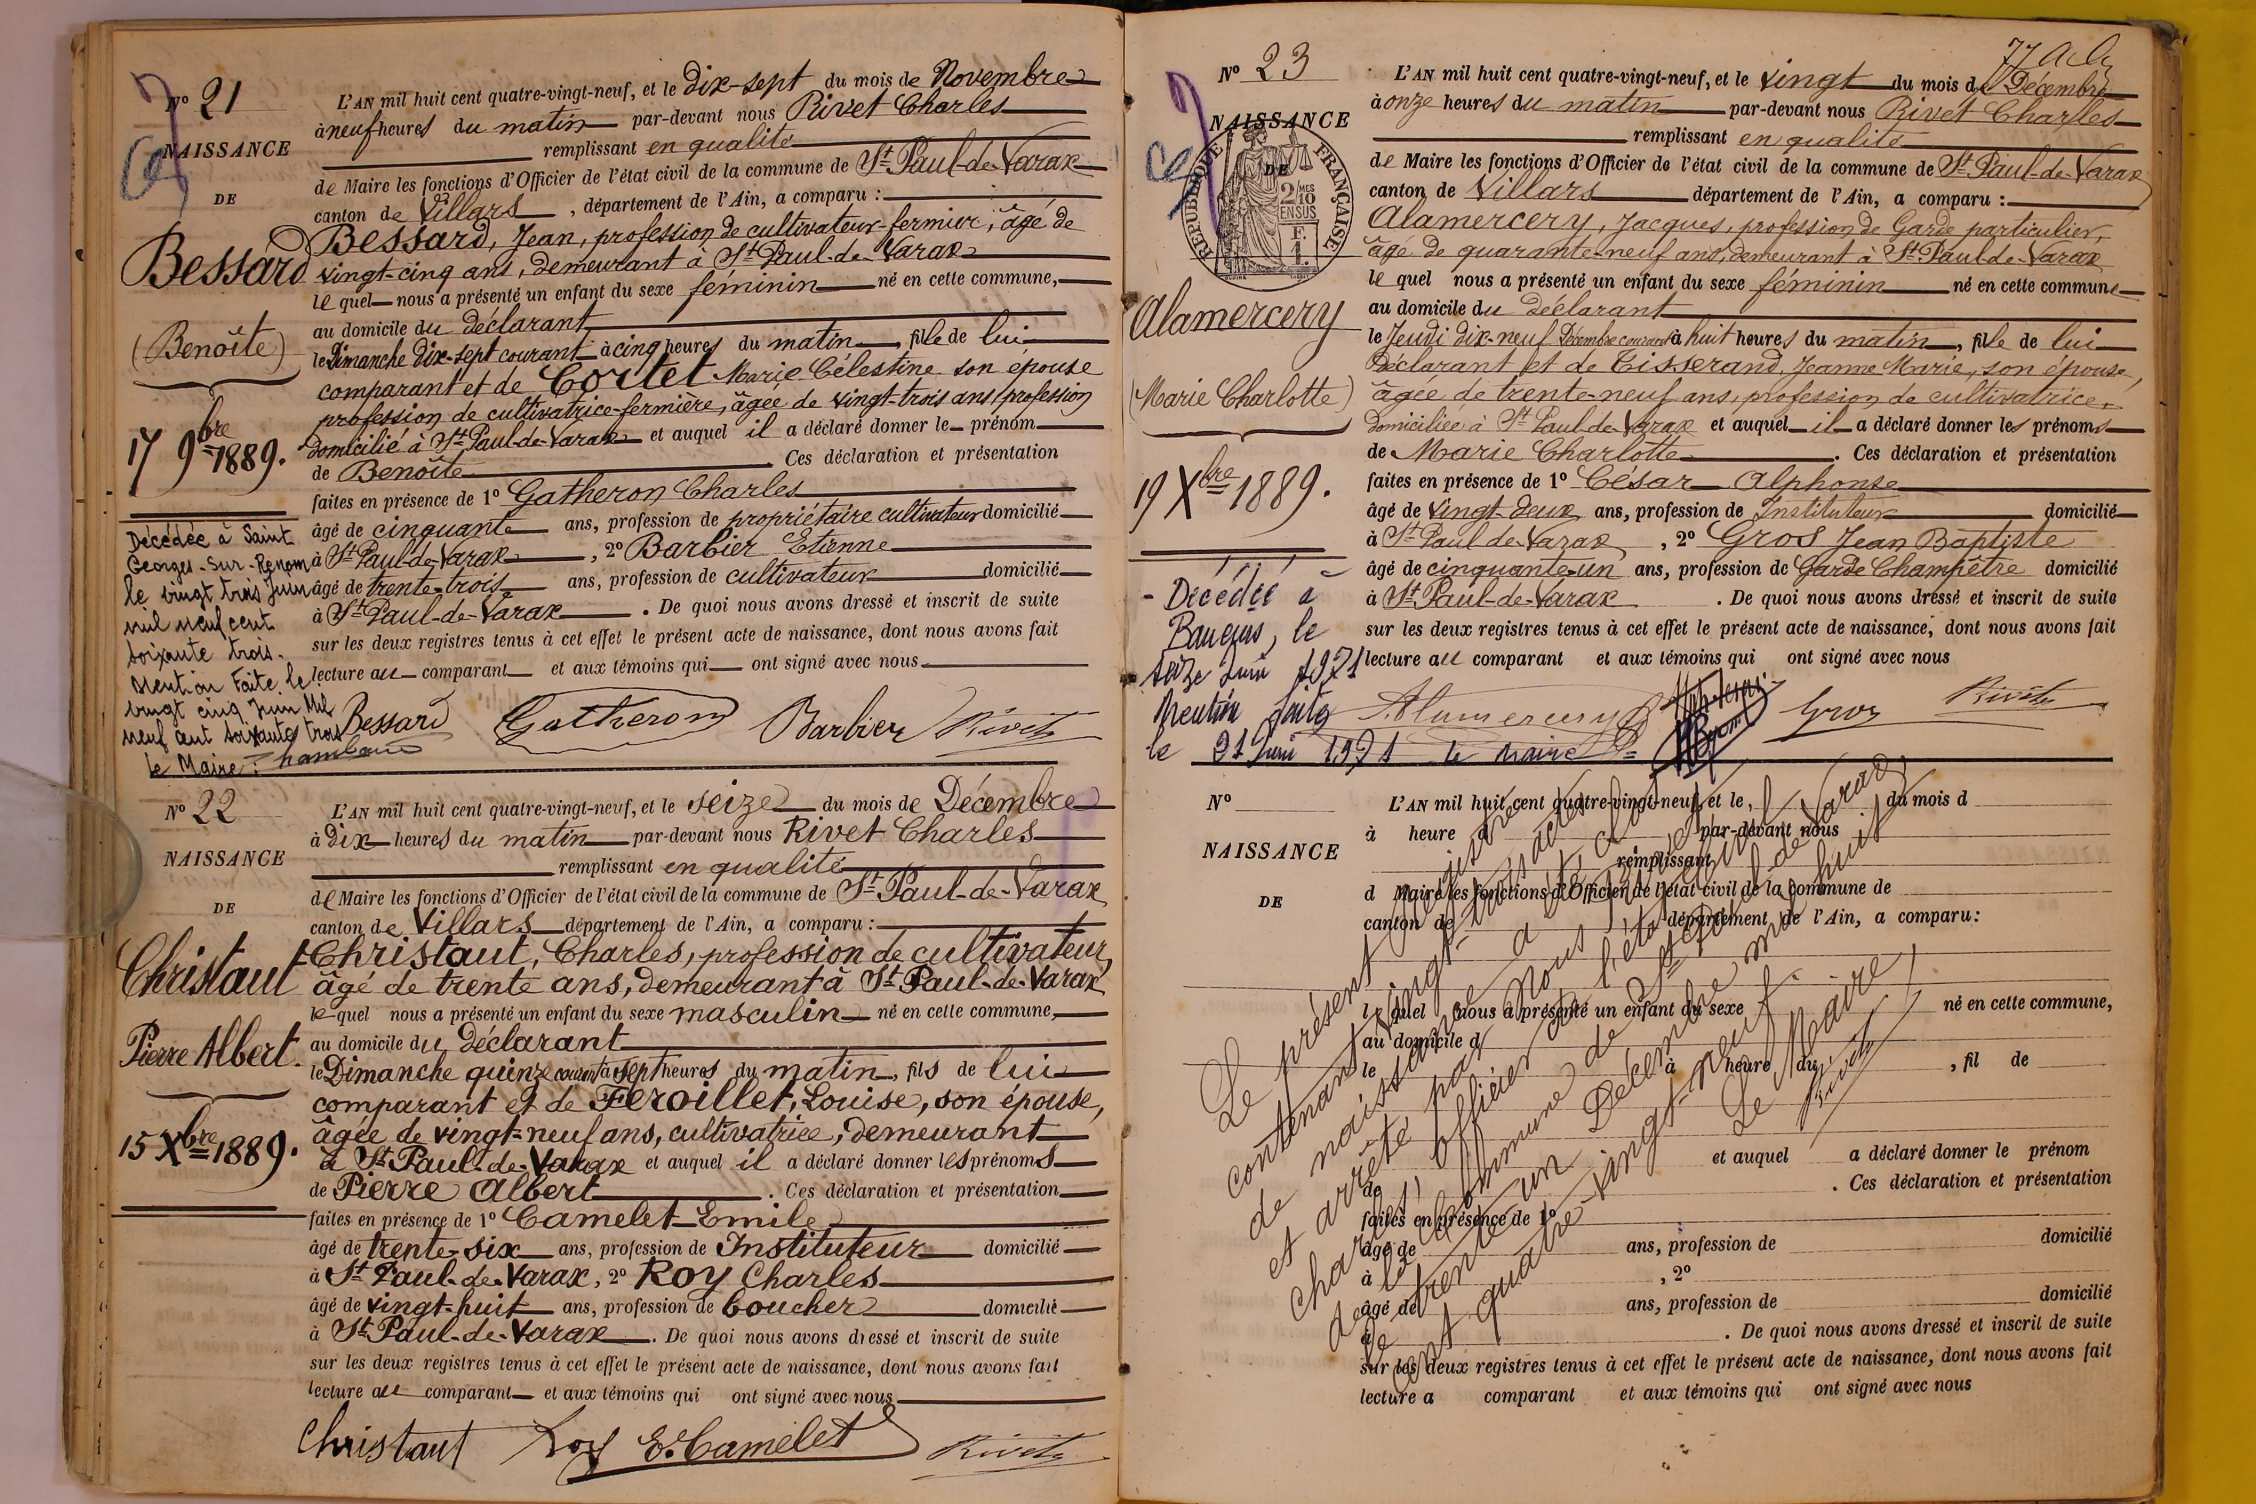 Nº 21
NAISSANCE
DE
Bessard
(Benoîte)
17 9bre 1889.
Décédée à Saint
Georges-Sur-Renom
le vingt trois Juin
mil neuf cent
soixante trois.
Mention Faite le
vingt cinq Juin Mil
neuf cent soixante trois
Le Maire :
L'AN mil huit cent quatre-vingt-neuf, et le dix-sept du mois de Novembre
à neuf heures du matin par-devant nous Rivet Charles
remplissant en qualité
de Maire les fonctions d'Officier de l'état civil de la commune de St Paul-de-Varax
canton de Villars, département de l'Ain, a comparu :
Bessard, Jean, profession de cultivateur-fermier, âgé de
vingt-cinq ans, demeurant à St Paul-de-Varax
lequel nous a présenté un enfant du sexe féminin né en cette commune,
au domicile du déclarant
le Dimanche dix-sept courant à cinq heures du matin, fille de lui
comparant et de Cortet Marie Célestine son épouse
profession de cultivatrice-fermière, âgée de vingt-trois ans, profession
domicilié à St Paul-de-Varax et auquel il a déclaré donner le prénom
de Benoîte. Ces déclaration et présentation
faites en présence de 1º Gatheron Charles
âgé de cinquante ans, profession de propriétaire cultivateur domicilié
à St Paul-de-Varax, 2º Barbier Etienne
âgé de trente-trois ans, profession de cultivateur domicilié
à St Paul-de-Varax. De quoi nous avons dressé et inscrit de suite
sur les deux registres tenus à cet effet le présent acte de naissance, dont nous avons fait
lecture au comparant et aux témoins qui ont signé avec nous
Bessard Gatheron Barbier Rivet
Nº 22
NAISSANCE
DE
Christaut
Pierre Albert.
15 Xbre 1889.
L'AN mil huit cent quatre-vingt-neuf, et le seize du mois de Décembre
à dix heures du matin par-devant nous Rivet Charles
remplissant en qualité
de Maire les fonctions d'Officier de l'état civil de la commune de St Paul-de-Varax
canton de Villars département de l'Ain, a comparu :
Christaut, Charles, profession de cultivateur,
âgé de trente ans, demeurant à St Paul-de-Varax
lequel nous a présenté un enfant du sexe masculin né en cette commune,
au domicile du déclarant
le Dimanche quinze courant à sept heures du matin, fils de lui
comparant et de Feroillet, Louise, son épouse,
âgée de vingt-neuf ans, cultivatrice, demeurant
à St Paul-de-Varax et auquel il a déclaré donner les prénoms
de Pierre Albert. Ces déclaration et présentation
faites en présence de 1º Camelet Emile
âgé de trente-six ans, profession de Instituteur domicilié
à St Paul-de-Varax, 2º Roy Charles
âgé de vingt-huit ans, profession de boucher domicilié
à St Paul-de-Varax. De quoi nous avons dressé et inscrit de suite
sur les deux registres tenus à cet effet le présent acte de naissance, dont nous avons fait
lecture au comparant et aux témoins qui ont signé avec nous
Christaut Roy E. Camelet Rivet
Nº 23
NAISSANCE
DE
RÉPUBLIQUE FRANÇAISE
2/10 MES
EN SUS
F.
1.
Alamercery
(Marie Charlotte)
19 Xbre 1889.
Décédée à
le
seize Juin 1971
Mention faite
le 21 Juin 1971 le maire
L'AN mil huit cent quatre-vingt-neuf, et le vingt du mois de Décembre
à onze heures du matin par-devant nous Rivet Charles
remplissant en qualité
de Maire les fonctions d'Officier de l'état civil de la commune de St Paul-de-Varax
canton de Villars département de l'Ain, a comparu :
Alamercery, Jacques, profession de Garde particulier,
âgé de quarante-neuf ans, demeurant à St Paul-de-Varax
lequel nous a présenté un enfant du sexe féminin né en cette commune
au domicile du déclarant
le Jeudi dix-neuf Décembre courant à huit heures du matin, fille de lui
Déclarant et de Tisserand, Jeanne Marie, son épouse,
âgée de trente-neuf ans, profession de cultivatrice,
domiciliée à St Paul-de-Varax et auquel il a déclaré donner les prénoms
de Marie Charlotte. Ces déclaration et présentation
faites en présence de 1º César Alphonse
âgé de vingt-deux ans, profession de Instituteur domicilié
à St Paul de Varax, 2º Gros Jean Baptiste
âgé de cinquante-un ans, profession de Garde Champêtre domicilié
à St Paul-de-Varax. De quoi nous avons dressé et inscrit de suite
sur les deux registres tenus à cet effet le présent acte de naissance, dont nous avons fait
lecture au comparant et aux témoins qui ont signé avec nous
Alamercery Gros Rivet
Nº
NAISSANCE
DE
L'AN mil huit cent quatre-vingt-neuf, et le, du mois d
à heure d par-devant nous
remplissant
d Maire les fonctions d'Officier de l'état civil de la commune de
canton de département de l'Ain, a comparu:
lequel nous a présenté un enfant du sexe né en cette commune,
au domicile d
le à heure du, fil de
et auquel a déclaré donner le prénom
de. Ces déclaration et présentation
faites en présence de 1º
âgé de ans, profession de domicilié
à, 2º
âgé de ans, profession de domicilié
à. De quoi nous avons dressé et inscrit de suite
sur les deux registres tenus à cet effet le présent acte de naissance, dont nous avons fait
lecture a comparant et aux témoins qui ont signé avec nous
Le présent registre
contenant vingt-trois actes
de naissance a été clos
et arrêté par Nous Rivet
Charles, officier de l'état civil
de la Commune de St Paul-de-Varax
le trente-un Décembre mil huit
cent quatre-vingt-neuf.
Le Maire,
Rivet